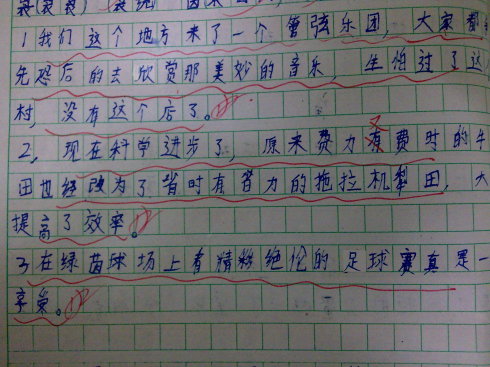 1我们这个地方来了一个管弦乐团,大家都
先恐后的去欣赏那美妙的音乐,生怕过了这
村,没有这个店了。
2,现在科学进步了,原来费力有费时的牛
又
田也经改为了省时有省力的拖拉机犁田,大
提高了效率。
3在绿茵球场上有精彩绝伦的足球赛真是一
享受。